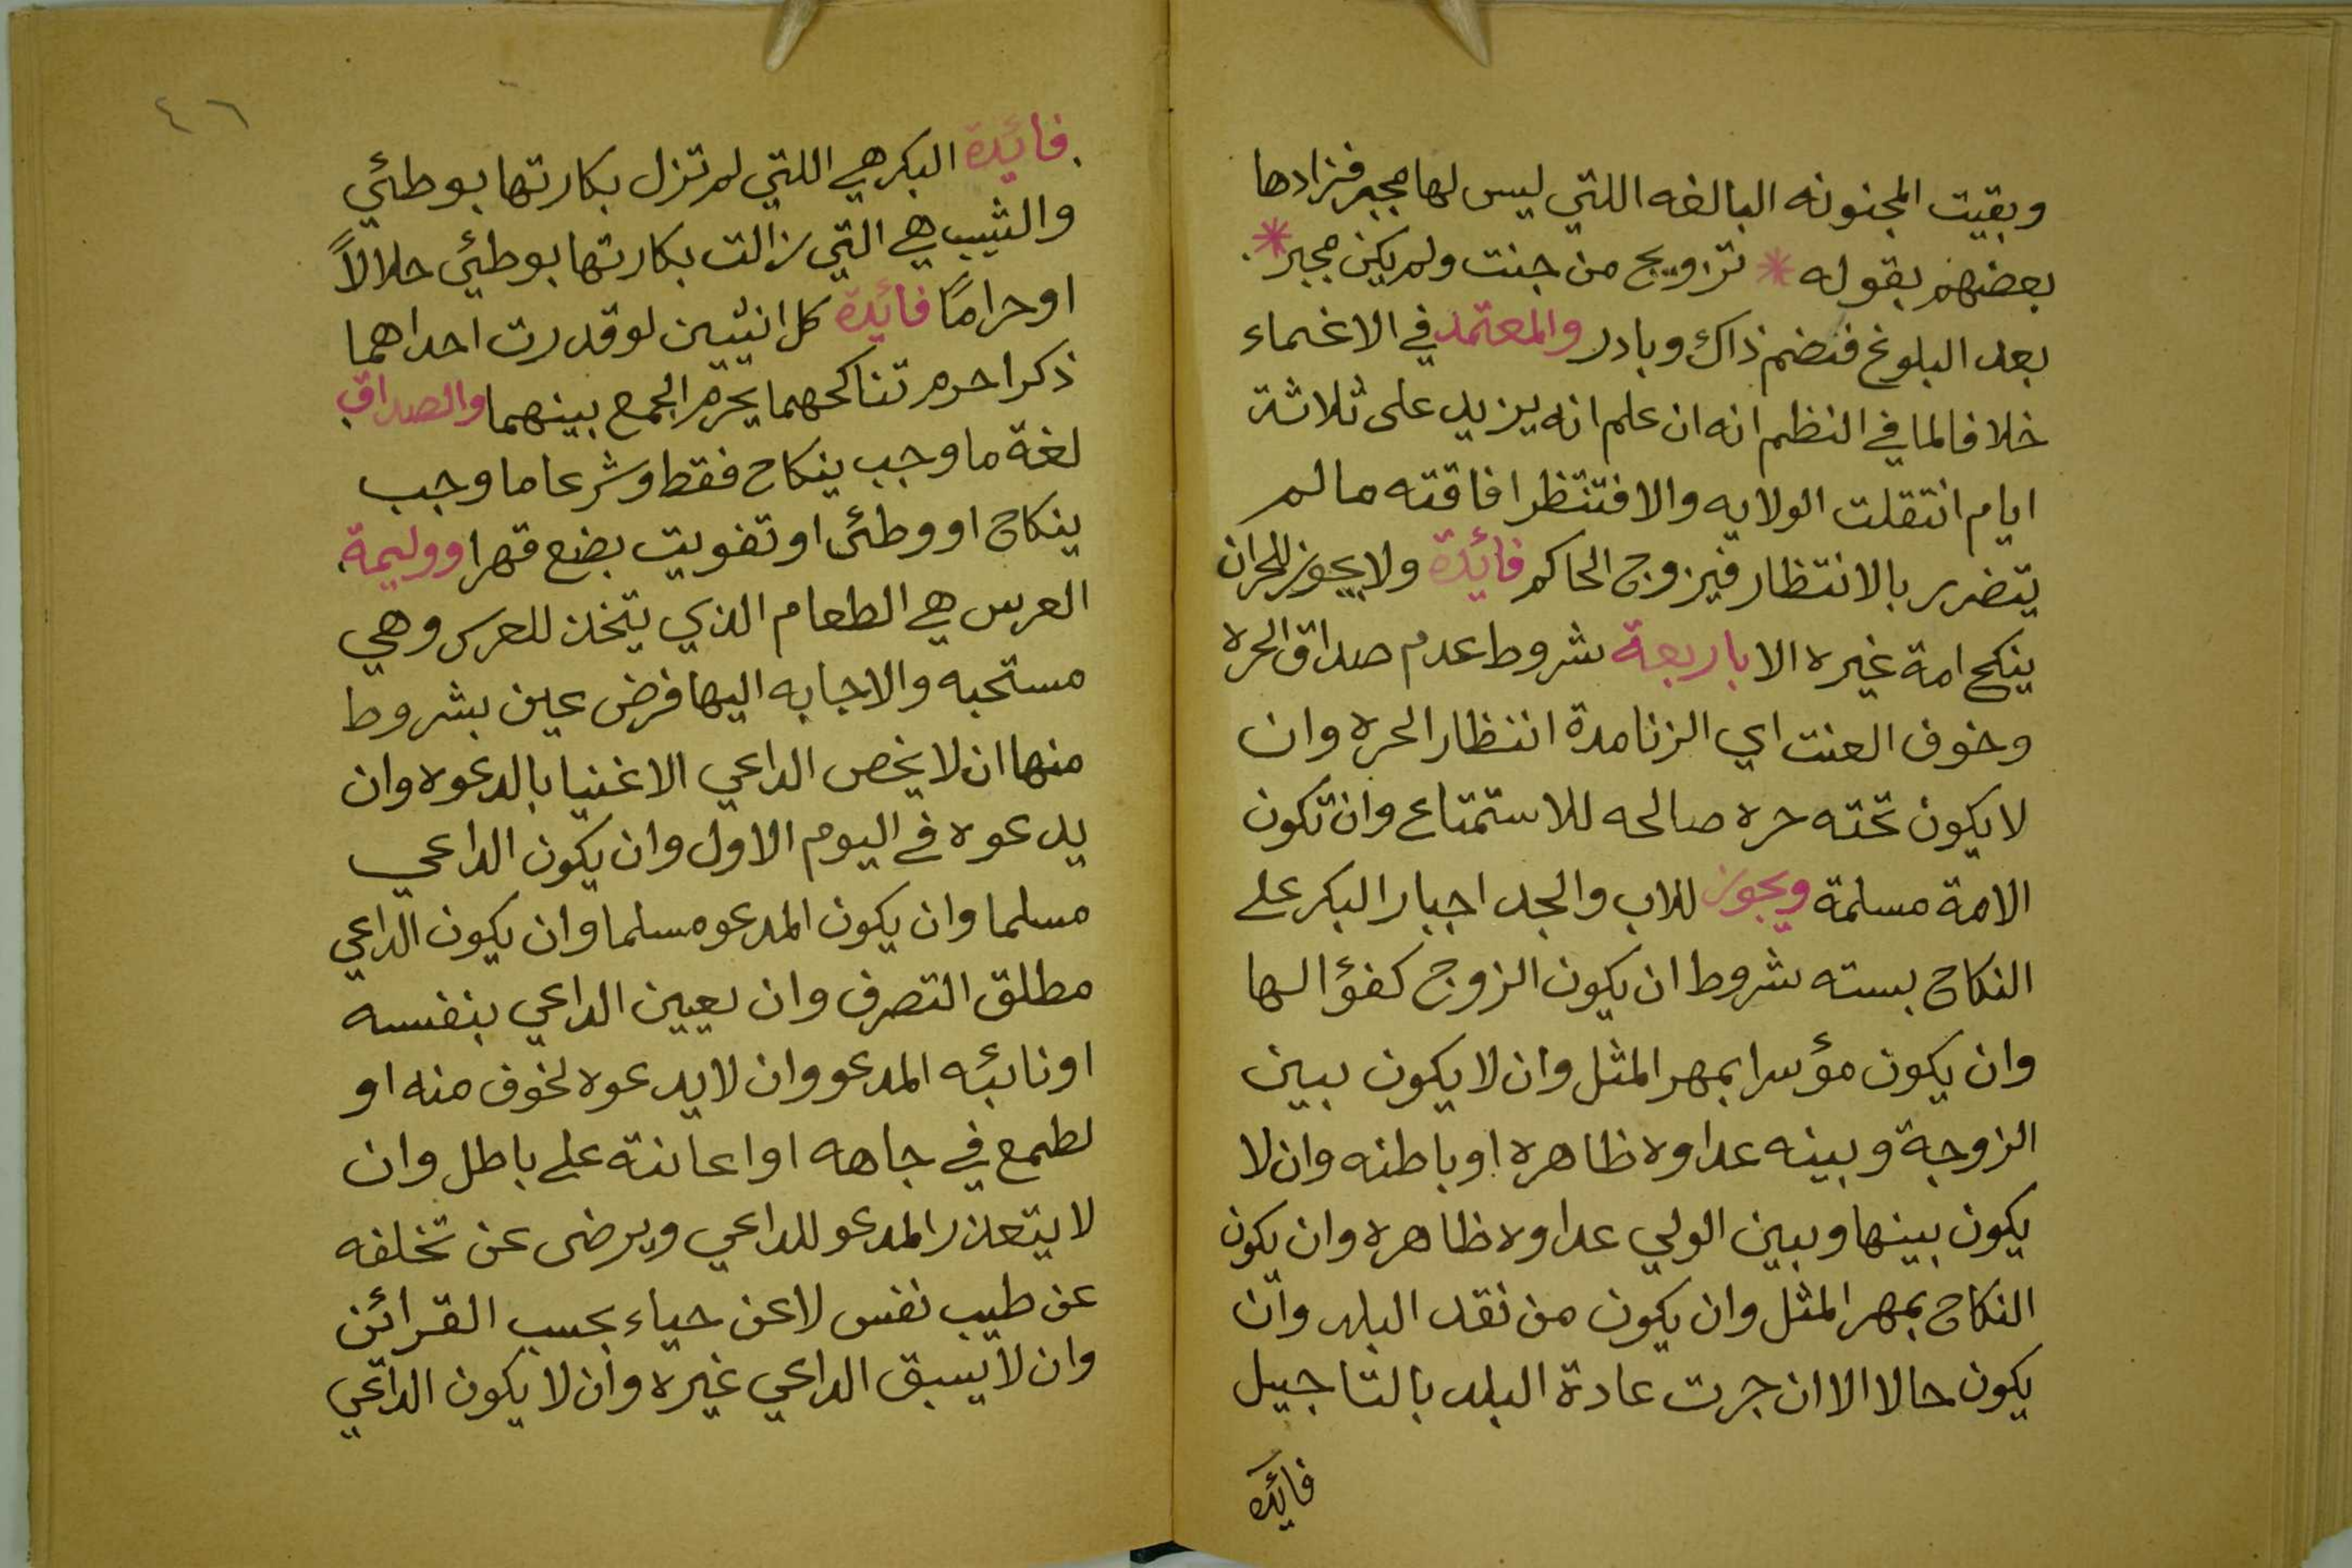 وبقيت المجنونه البالغه اللتي ليس لها مجبر فزادها
بعضهم بقوله * تزويج من جنت ولم يكن مجبر *
بعد البلوغ فنضم ذاك وبادر والمعتمد في الاغماء
خلافا لما في النظم انه ان علم انه يزيد على ثلاثة
ايام انتقلت الولايه والا فتنتظر افاقته مالم
يتضرر بالانتظار فيزوج الحاكم فائدة ولا يجوز للحران
ينكح امة غيره الا باربعة شروط عدم صداق الحره
وخوف العنت اي الزنا مدة انتظار الحره وان
لا يكون تحته حره صالحه للاستمتاع وان تكون
الامة مسلمة ويجوز للاب والجد اجبار البكر على
النكاح بسته شروط ان يكون الزوج كفؤا لها
وان يكون مؤسرا بمهر المثل وان لا يكون بين
الزوجة وبينه عداوه ظاهره او باطنه وان لا
يكون بينها وبين الولي عداوه ظاهره وان يكون
النكاح بمهر المثل وان يكون من نقد البلد وان
يكون حالا الا ان جرت عادة البلد بالتاجيل
فائده
٤٦
فائدة البكر هي اللتي لم تزل بكارتها بوطئي
والثيب هي التي زالت بكارتها بوطئي حلالاً
او حراماً فائدة كل انثيين لو قدرت احداهما
ذكرا حرم تناكحهما يحرم الجمع بينهما والصداق
لغة ما وجب بنكاح فقط وشرعا ما وجب
بنكاح او وطئ او تفويت بضع قهرا ووليمة
العرس هي الطعام الذي يتخذ للعرس وهي
مستحبه والاجابه اليها فرض عين بشروط
منها ان لا يخص الداعي الاغنيا بالدعوه وان
يدعوه في اليوم الاول وان يكون الداعي
مسلما وان يكون المدعو مسلما وان يكون الداعي
مطلق التصرف وان يعيين الداعي بنفسه
او نائبه المدعو وان لا يدعوه لخوف منه او
لطمع في جاهه او اعانته على باطل وان
لا يتعذر المدعو للداعي ويرضى عن تخلفه
عن طيب نفس لا عن حياء بحسب القرائن
وان لا يسبق الداعي غيره وان لا يكون الداعي